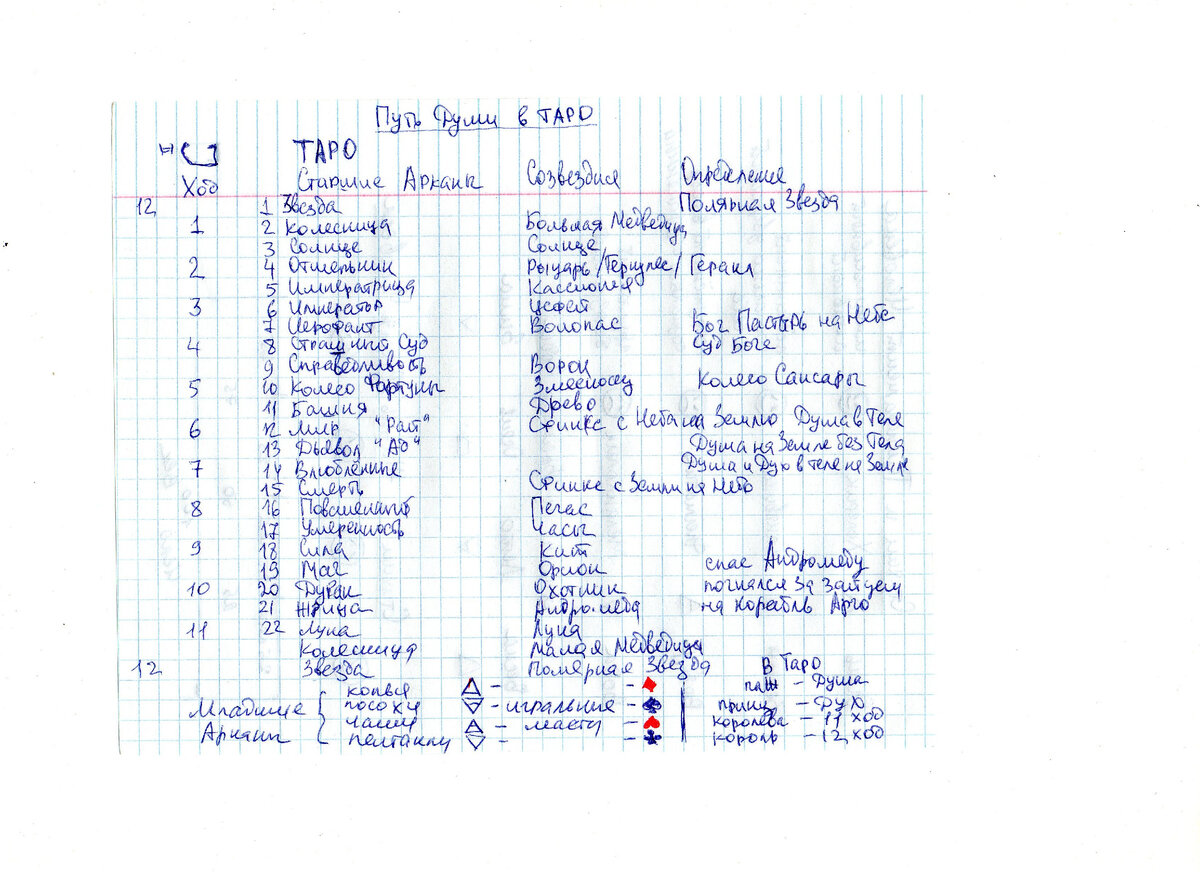 Путь Души в ТАРО
ТАРО
Ход Старшие Арканы Созвездия Определение
12 1 Звезда Полярная Звезда
1 2 Колесница Большая Медведица
3 Солнце Солнце
2 4 Отшельник Рыцарь /Геркулес/ Геракл
5 Императрица Кассиопея
3 6 Император Цефей
7 Иерофант Волопас Бог Пастырь на Небе
4 8 Страшный Суд Суд Боге
9 Справедливость Ворон
5 10 Колесо Фортуны Змееносец Колесо Сансары
11 Башня Древо
6 12 Мир "Рай" Сфинкс с Неба на Землю Душа в Теле
13 Дьявол "Ад" Душа на Земле без Тела
7 14 Влюблённые Душа и Дух в теле на Земле
15 Смерть Сфинкс с Земли на Небо
8 16 Повешенный Пегас
17 Умеренность Часы
9 18 Сила Кит
19 Маг Орион спас Андромеду
10 20 Дурак Охотник погнался за Зайцем
21 Жрица Андромеда на корабль Арго
11 22 Луна Луна
Колесница Малая Медведица
12 Звезда Полярная Звезда В Таро
Младшие Арканы
копья △ - - ♦ паж - Душа
посохи ▽ - игральные - ♠ принц - Дух
чаши △ - масти - ♥ королева - 11 ход
пентакли ▽ - - ♣ король - 12 ход